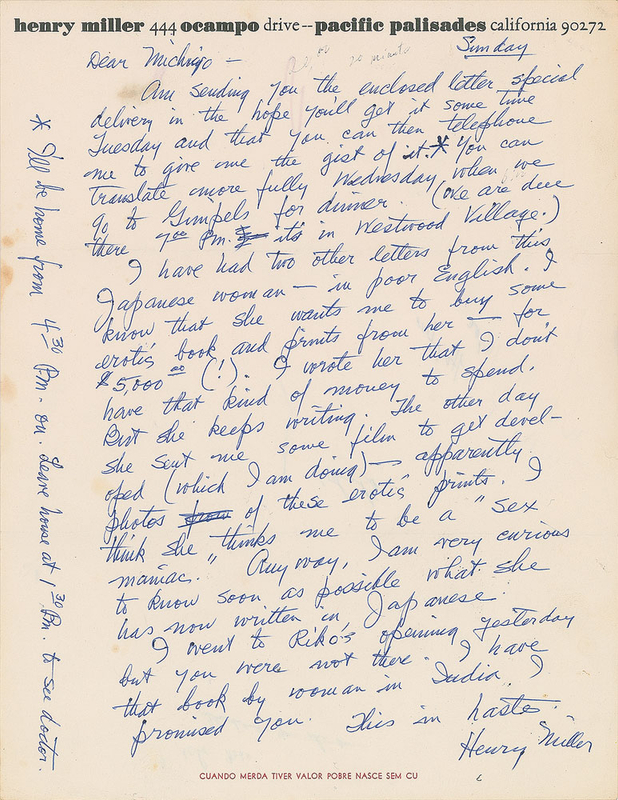 henry miller 444 ocampo drive -- pacific palisades california 90272
Sunday
Dear Michiyo -
Am sending you the enclosed letter special
delivery in the hope you'll get it some time
Tuesday and that you can then telephone
me to give me the gist of it.* You can
translate more fully Wednesday, when we
go to Gimpels for dinner. (We are due
there 7:00 Pm. it's in Westwood Village.)
I have had two other letters from this
Japanese woman — in poor English. I
know that she wants me to buy some
erotic book and prints from her — for
$5,000 00 (!). I wrote her that I don't
have that kind of money to spend.
But she keeps writing. The other day
she sent me some film to get devel-
oped (which I am doing) — apparently
photos of these erotic prints. I
think she thinks me to be a "sex
maniac." Any way, I am very curious
to know soon as possible what she
has now written in Japanese.
I went to Riko's opening yesterday
but you were not there. I have
that book by woman in India I
promised you. This in haste
Henry Miller
* I'll be home from 4 30 Pm. on. Leave house at 1 30 Pm. to see doctor.
CUANDO MERDA TIVER VALOR POBRE NASCE SEM CU